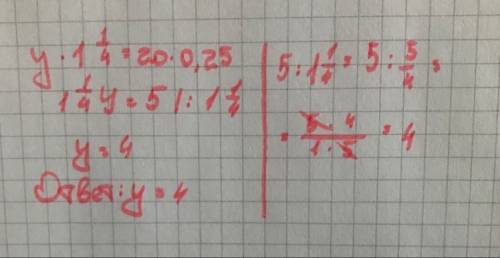 y · 1 1/4 = 20 · 0,25
1 1/4 y = 5 |: 1 1/4
y = 4
Ответ: y = 4
5 : 1 1/4 = 5 : 5/4 =
= 5 · 4 / 1 · 5 = 4